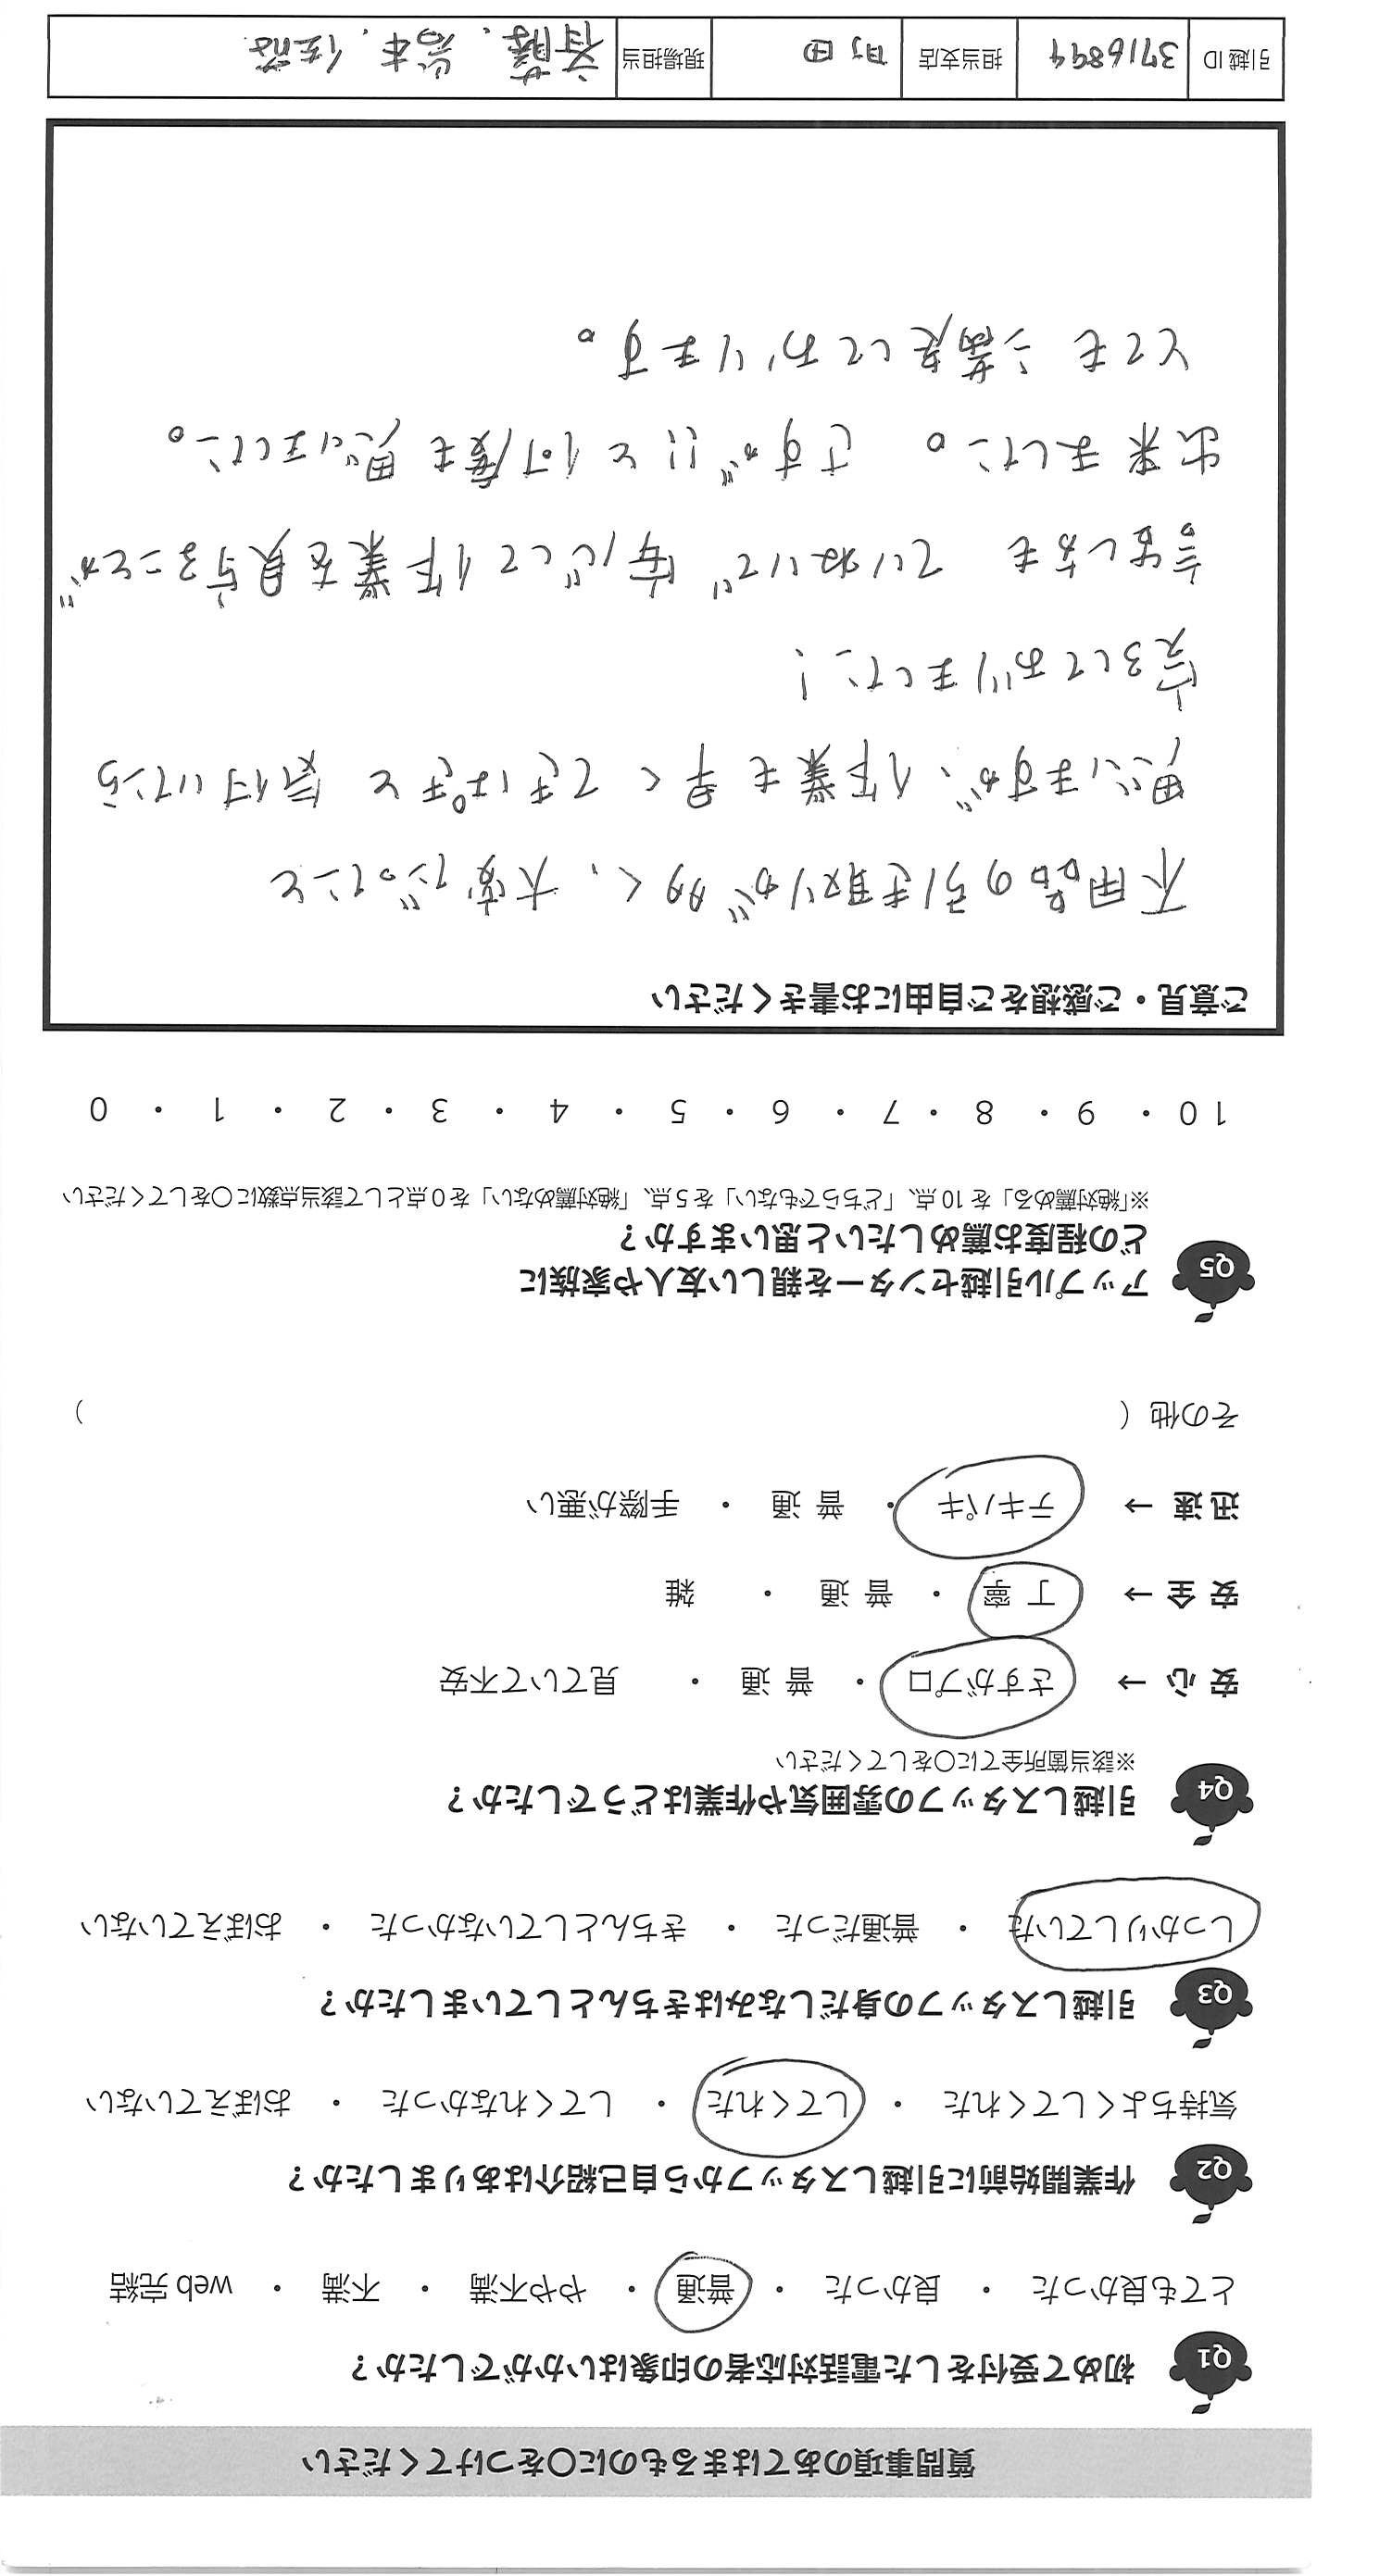 質問事項のあてはまるものに○をつけてください
Q1 初めて受付をした電話対応者の印象はいかがでしたか？
とても良かった ・ 良かった ・ 普通 ・ やや不満 ・ 不満 ・ web 完結
Q2 作業開始前に引越しスタッフから自己紹介はありましたか？
気持ちよくしてくれた ・ してくれた ・ してくれなかった ・ おぼえていない
Q3 引越しスタッフの身だしなみはきちんとしていましたか？
しっかりしていた ・ 普通だった ・ きちんとしていなかった ・ おぼえていない
Q4 引越しスタッフの雰囲気や作業はどうでしたか？
※該当箇所全てに○をしてください
安 心 → さすがプロ ・ 普 通 ・ 見ていて不安
安 全 → 丁 寧 ・ 普 通 ・ 雑
迅 速 → テキパキ ・ 普 通 ・ 手際が悪い
その他 （ ）
Q5 アップル引越センターを親しい友人や家族に
どの程度お薦めしたいと思いますか？
※「絶対薦める」を 10 点、「どちらでもない」を 5 点、「絶対薦めない」を 0 点として該当点数に○をしてください
10 ・ 9 ・ 8 ・ 7 ・ 6 ・ 5 ・ 4 ・ 3 ・ 2 ・ 1 ・ 0
ご意見・ご感想をご自由にお書きください
不用品の引き取りが多く、大変だったと
思いますが、作業も早く てきぱきと 気付いたら
完了しておりました！
話し方も ていねいで 安心して作業を見守ることが
出来ました。 さすが!! と何度も思いました。
とても満足しております。
引越 ID 3716894 担当支店 町田 現場担当 斉藤、岩本、佐斎